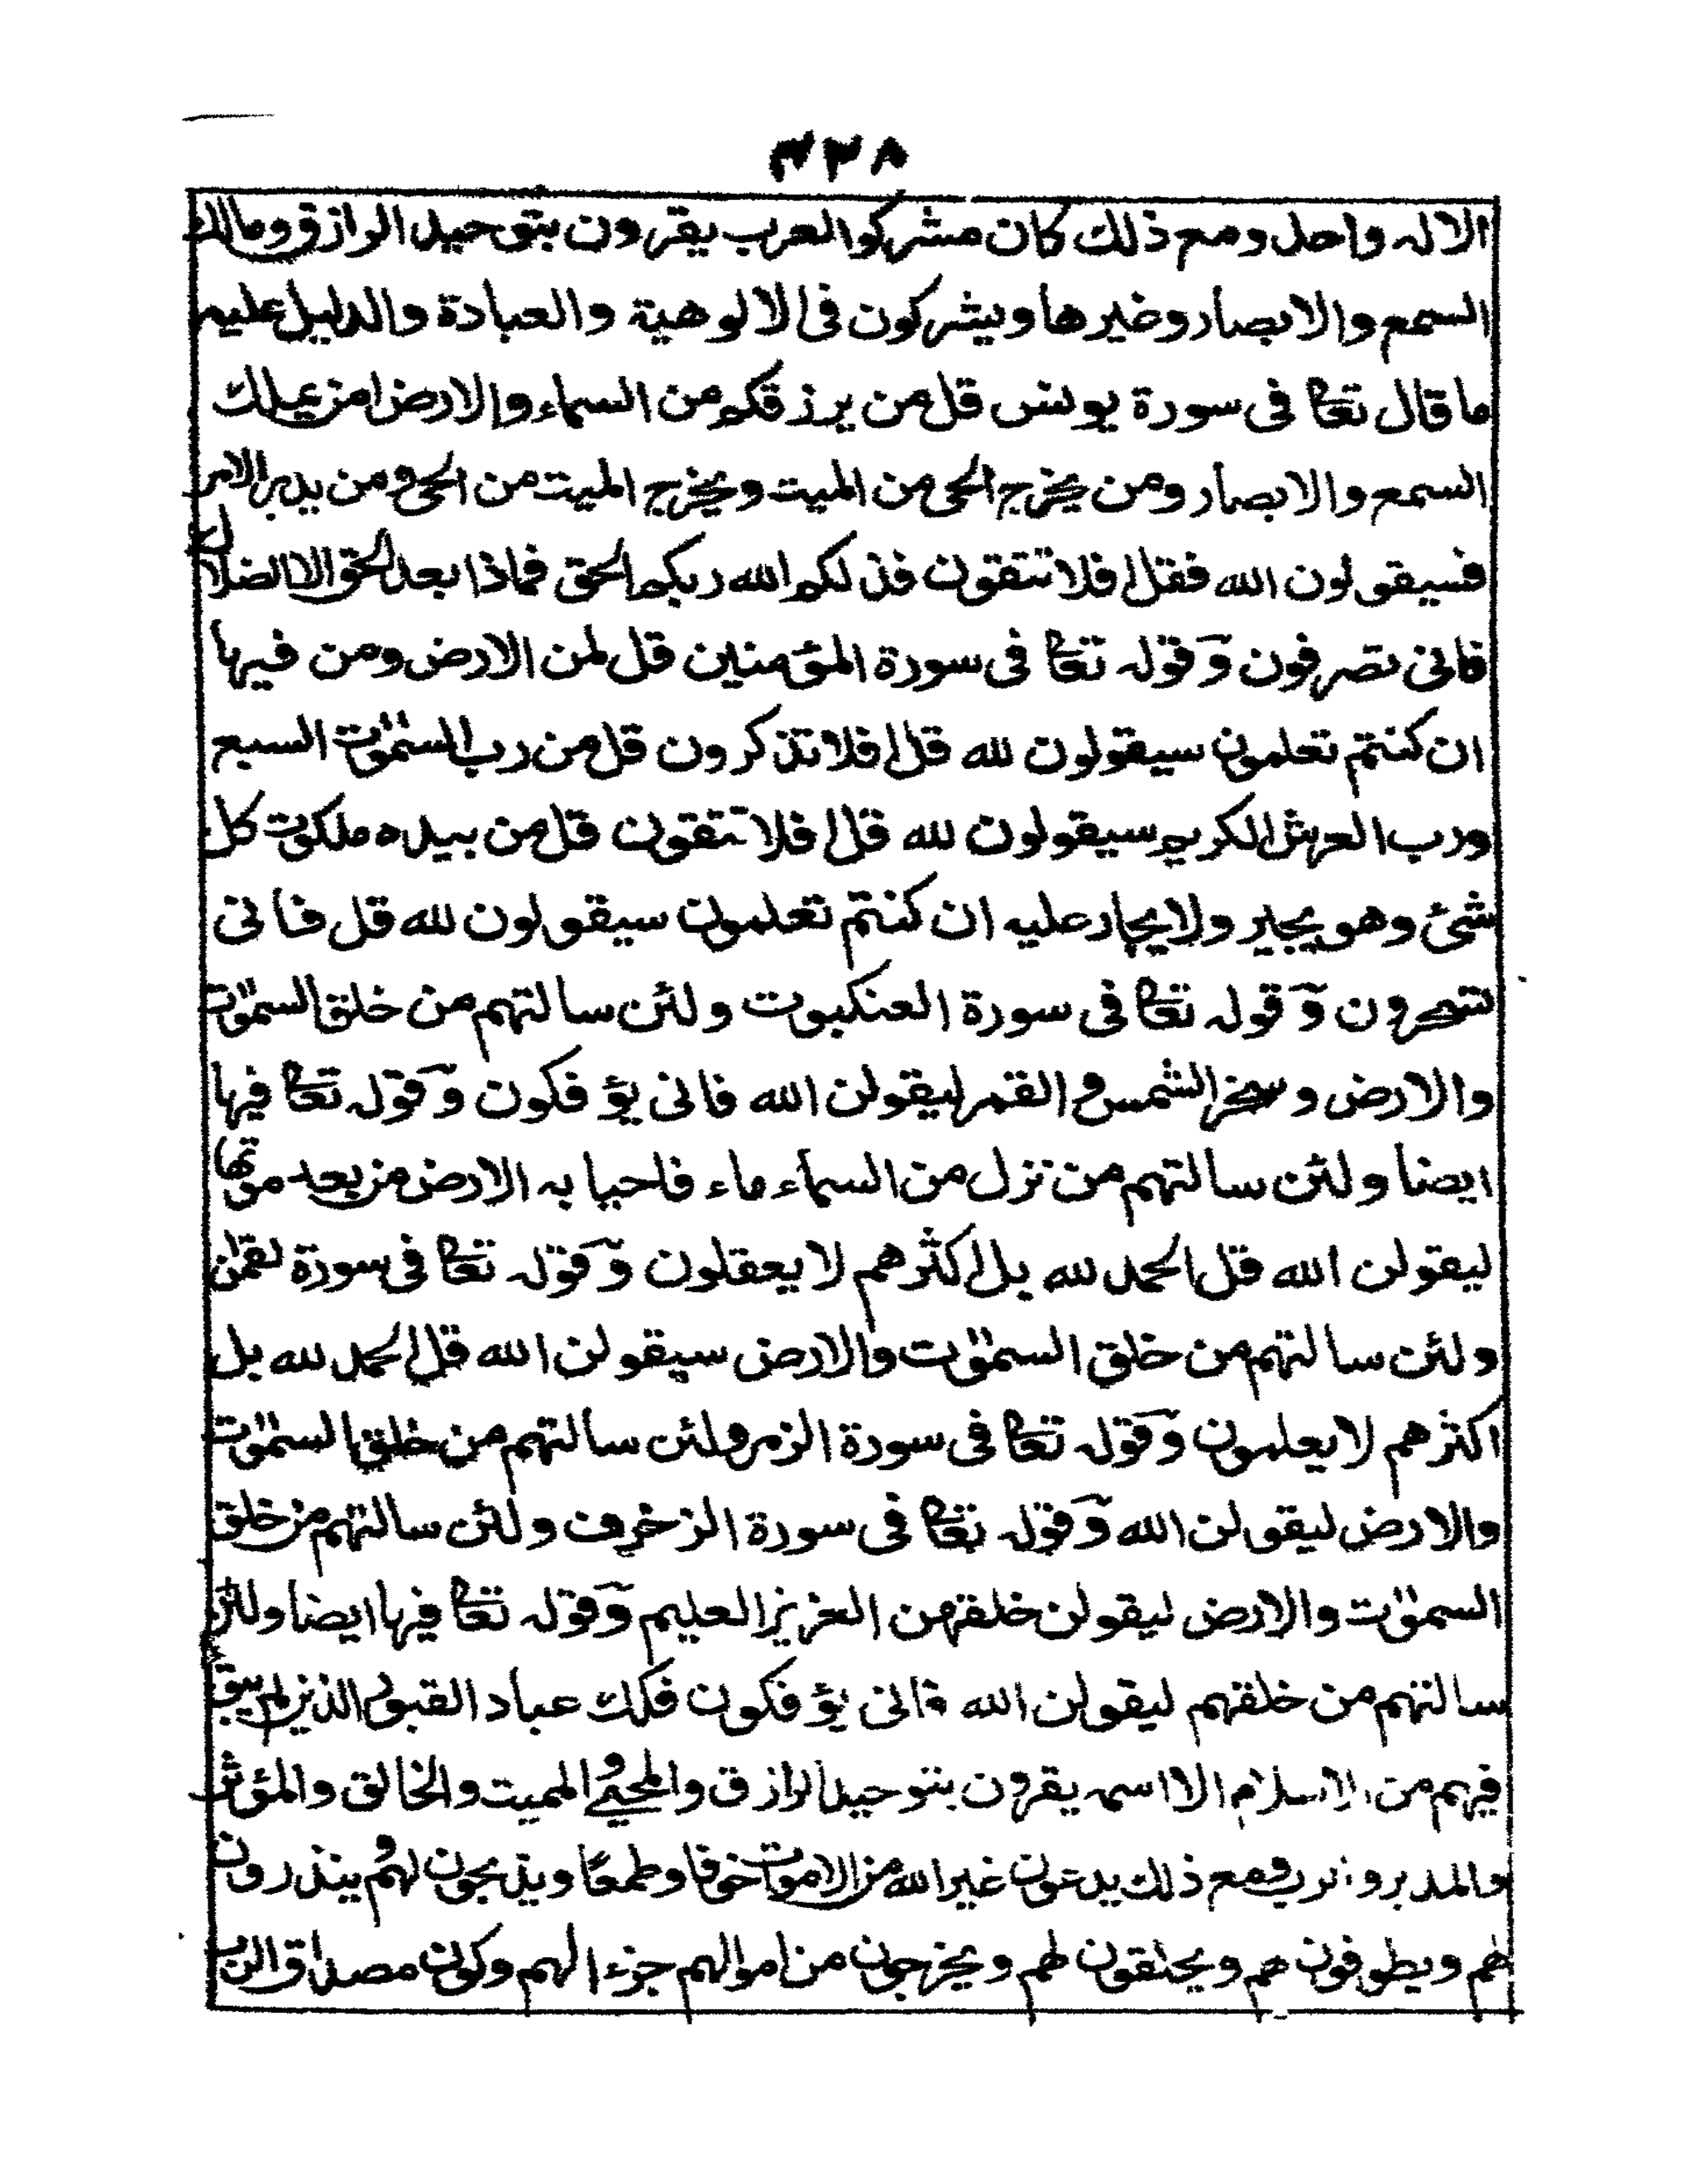 ٣٢٨
الاله واحد ومع ذلك كان مشركوا العرب يقرون بتوحيد الرازق ومالك
السمع والابصار وغيرها ويشركون فى الالوهية والعبادة والدليل عليه
ما قال تعا فى سورة يونس قل من يرزقكم من السماء والارض امن يملك
السمع والابصار ومن يخرج الحى من الميت ويخرج الميت من الحى ومن يدبر الامر
فسيقولون الله فقل افلا تتقون فذلكم الله ربكم الحق فماذا بعد الحق الا الضلال
فانى تصرفون وقوله تعا فى سورة المؤمنين قل لمن الارض ومن فيها
ان كنتم تعلمون سيقولون لله قل افلا تذكرون قل من رب السمٰوٰت السبع
ورب العرش الكريم سيقولون لله قل افلا تتقون قل من بيده ملكوت كل
شئ وهو يجير ولا يجار عليه ان كنتم تعلمون سيقولون لله قل فانى
تسحرون وقوله تعا فى سورة العنكبوت ولئن سالتهم من خلق السمٰوٰت
والارض وسخر الشمس والقمر ليقولن الله فانى يؤفكون وقوله تعا فيها
ايضا ولئن سالتهم من نزل من السماء ماء فاحيا به الارض من بعد موتها
ليقولن الله قل الحمد لله بل اكثرهم لا يعقلون وقوله تعا فى سورة لقمٰن
ولئن سالتهم من خلق السمٰوٰت والارض سيقولن الله قل الحمد لله بل
اكثرهم لا يعلمون وقوله تعا فى سورة الزمر ولئن سالتهم من خلق السمٰوٰت
والارض ليقولن الله وقوله تعا فى سورة الزخرف ولئن سالتهم من خلق
السمٰوٰت والارض ليقولن خلقهن العزيز العليم وقوله تعا فيها ايضا ولئن
سالتهم من خلقهم ليقولن الله فانى يؤفكون فكك عباد القبور الذين لم يبق
فيهم من الاسلام الا اسمه يقرون بتوحيد الرازق والمحي والمميت والخالق والمؤثر
والمدبر والرب ومع ذلك يدعون غير الله من الاموات خوفا وطمعًا ويذبحون لهم وينذرون
لهم ويطوفون هم ويحلقون لهم ويخرجون من اموالهم جزءا لهم وكون مصداق الرب